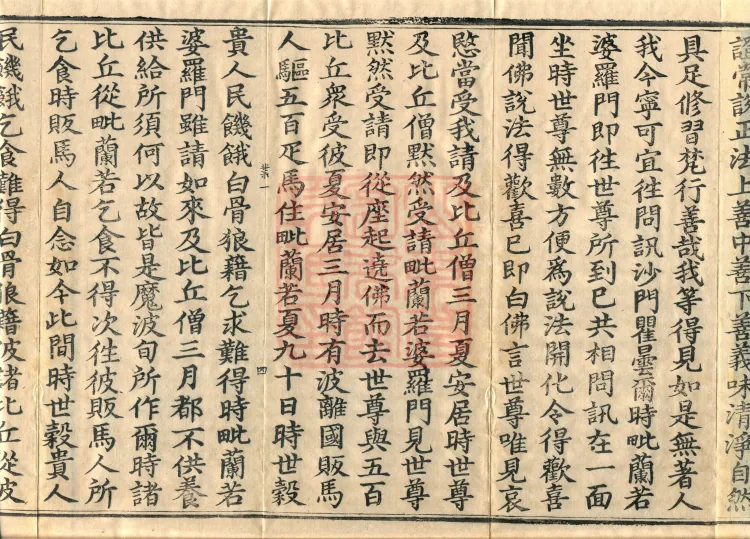 常說正法上善中善下善義味清淨自然
具足修習梵行善哉我等得見如是無著人
我今寧可宜往問訊沙門瞿曇爾時毗蘭若
婆羅門即往世尊所到已共相問訊在一面
坐時世尊無數方便爲說法開化令得歡喜
聞佛說法得歡喜已即白佛言世尊唯見哀
愍當受我請及比丘僧三月夏安居時世尊
及比丘僧默然受請毗蘭若婆羅門見世尊
默然受請即從座起遶佛而去世尊與五百
比丘衆受彼夏安居三月時有波離國販馬
人驅五百疋馬住毗蘭若夏九十日時世穀
一 四
貴人民饑餓白骨狼藉乞求難得時毗蘭若
婆羅門雖請如來及比丘僧三月都不供養
供給所須何以故皆是魔波旬所作爾時諸
比丘從毗蘭若乞食不得次往彼販馬人所
乞食時販馬人自念如今此間時世穀貴人
民饑餓乞食難得白骨狼藉彼諸比丘從彼